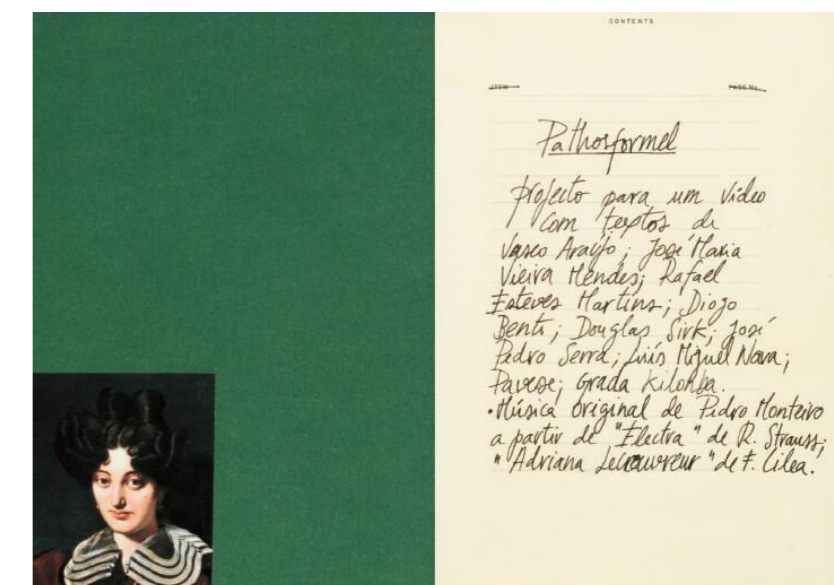 CONTENTS
ITEM PAGE No.
Pathosformel
projecto para um vídeo
com textos de
Vasco Araújo; José Maria
Vieira Mendes; Rafael
Esteves Martins; Diogo
Bento; Douglas Sirk; José
Pedro Serra; Luís Miguel Nava;
Pavese; Grada Kilomba.
• Música original de Pedro Monteiro
a partir de "Electra" de R. Strauss;
"Adriana Lecouvreur" de F. Cilea.